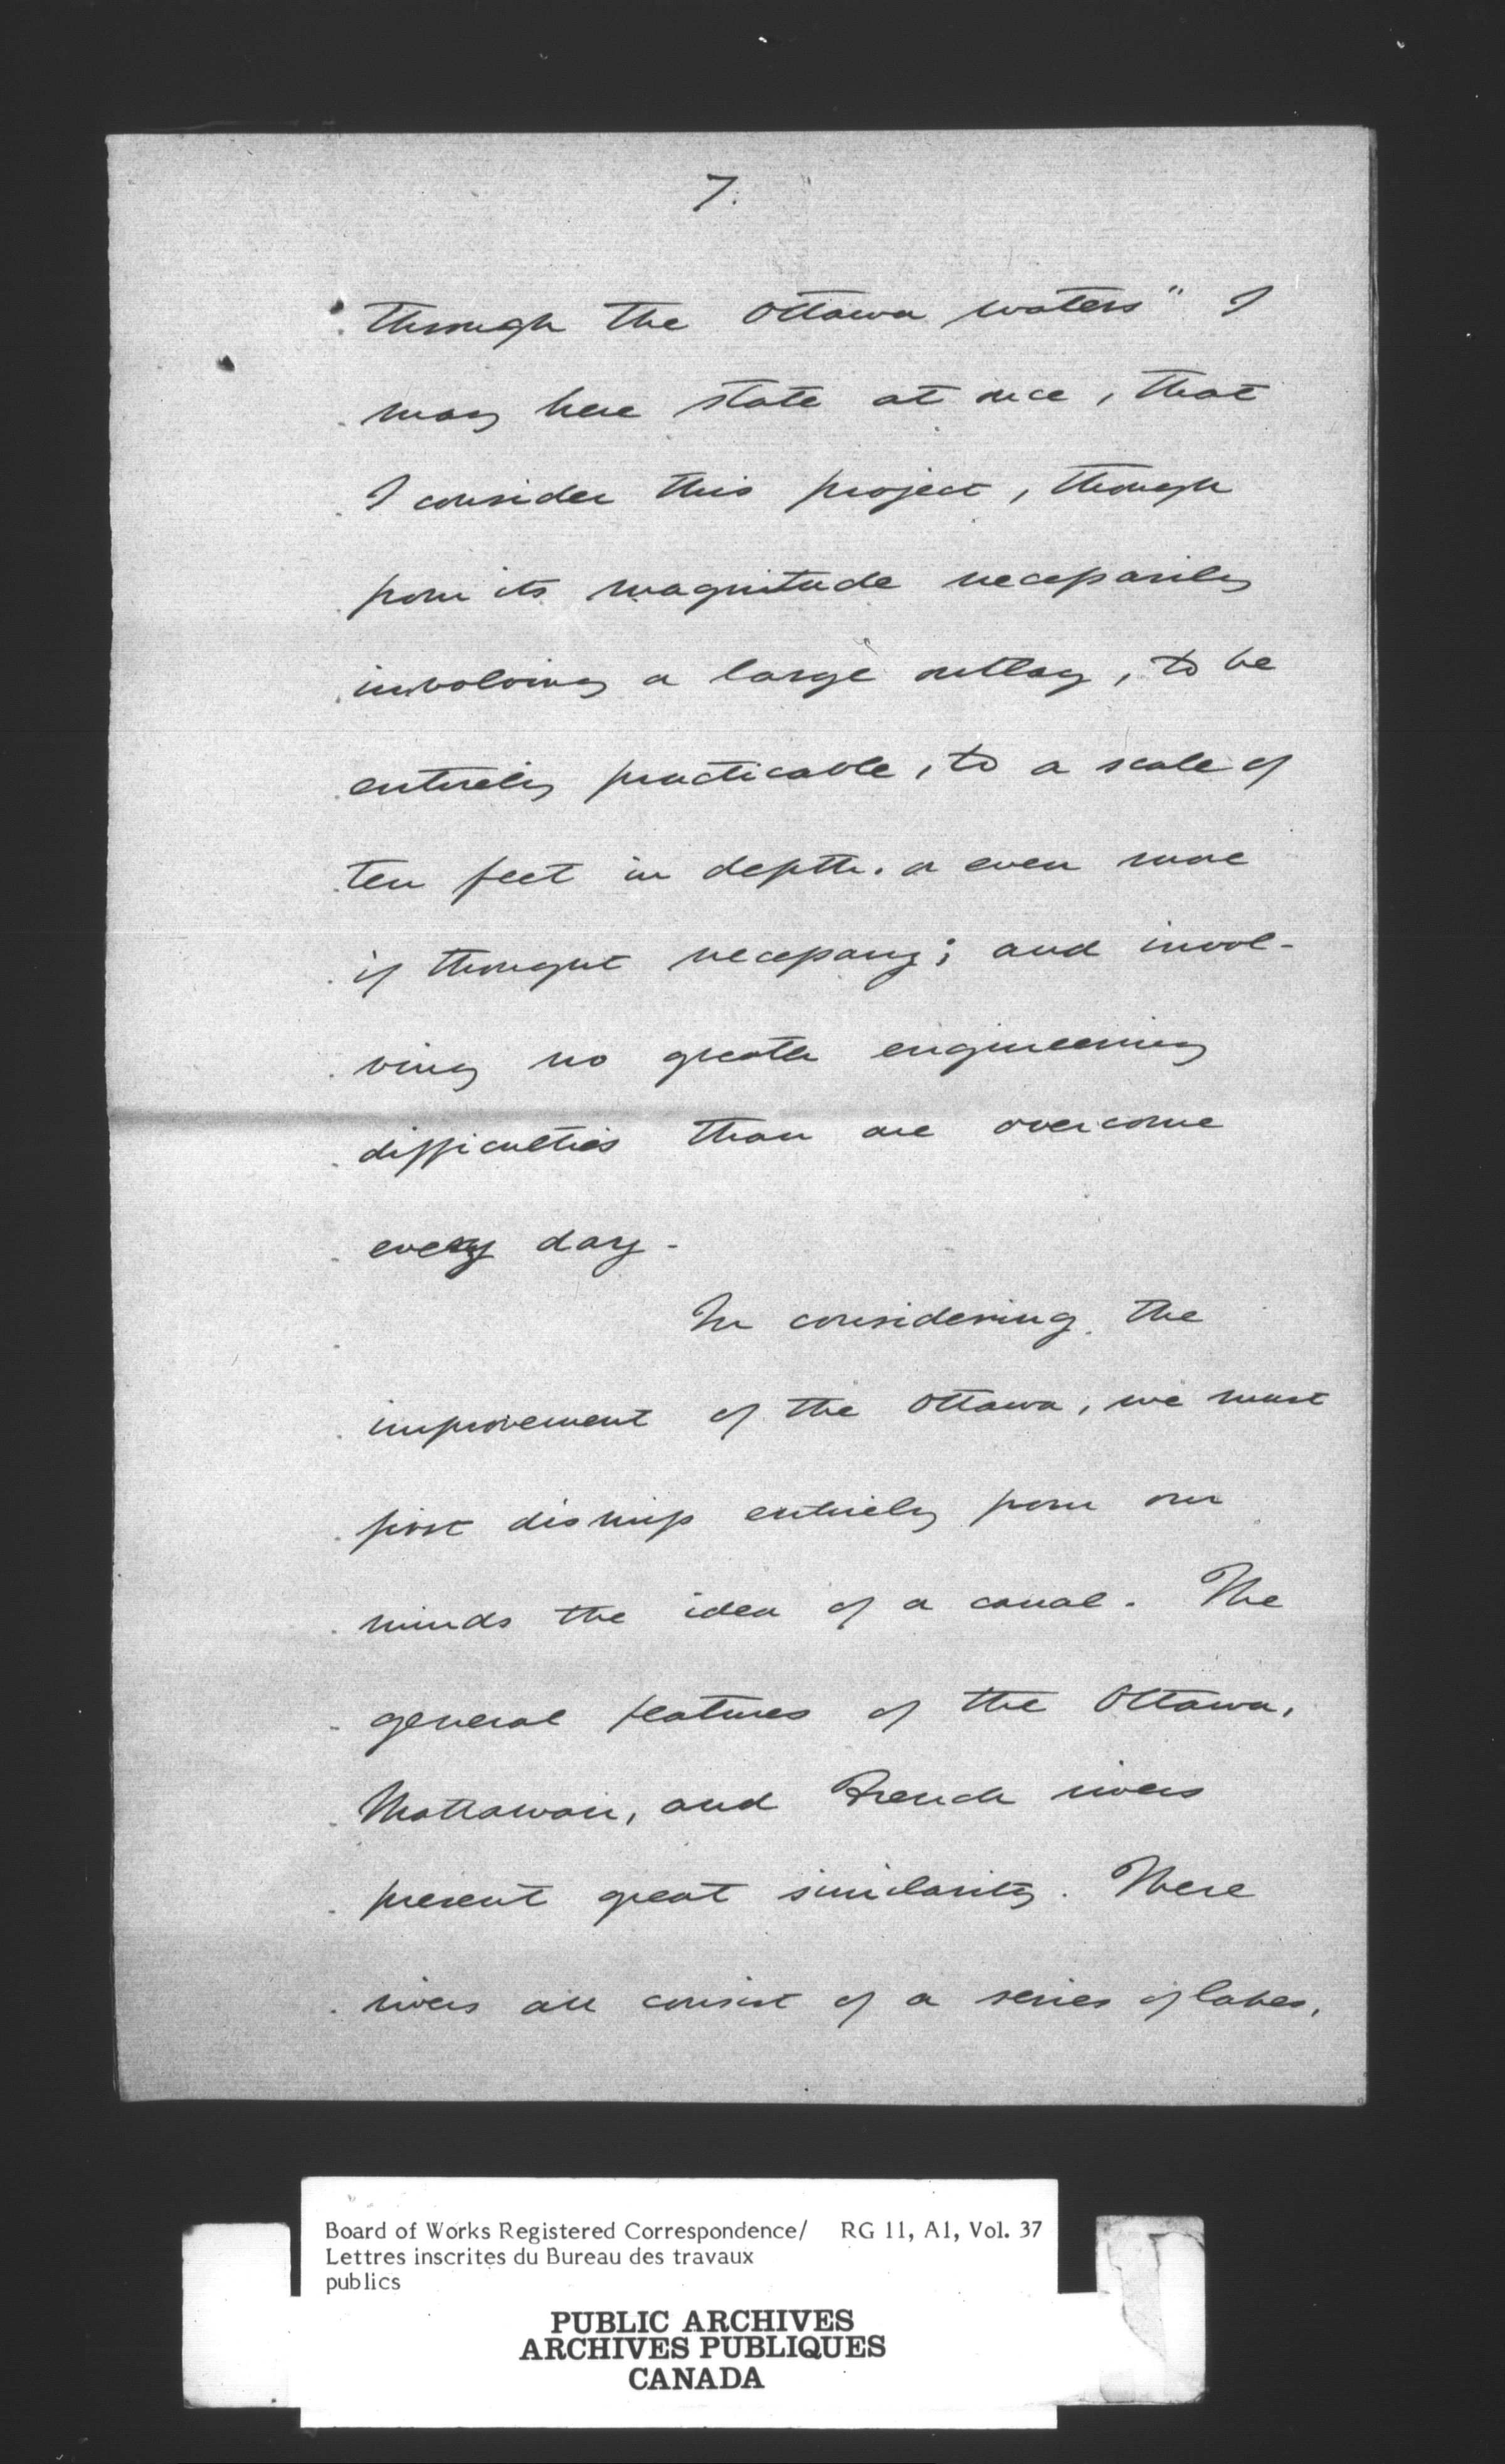 7.
through the Ottawa waters" I
may here state at once, that
I consider this project, though
from its magnitude necessarily
involving a large outlay, to be
entirely practicable, to a scale of
ten feet in depth. or even more
if thought necessary; and invol-
ving no greater engineering
difficulties than are overcome
every day -
In considering the
improvement of the Ottawa, we must
first dismiss entirely from our
minds the idea of a canal. The
general features of the Ottawa,
Mattawan, and French rivers
present great similarity. These
rivers all consist of a series of lakes,
Board of Works Registered Correspondence/ RG 11, A1, Vol. 37
Lettres inscrites du Bureau des travaux
publics
PUBLIC ARCHIVES
ARCHIVES PUBLIQUES
CANADA